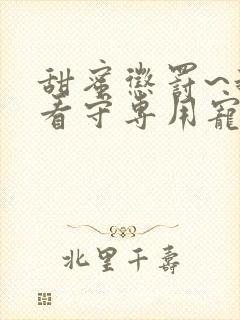 甜蜜懲罰~
看守專用寵
北里千壽